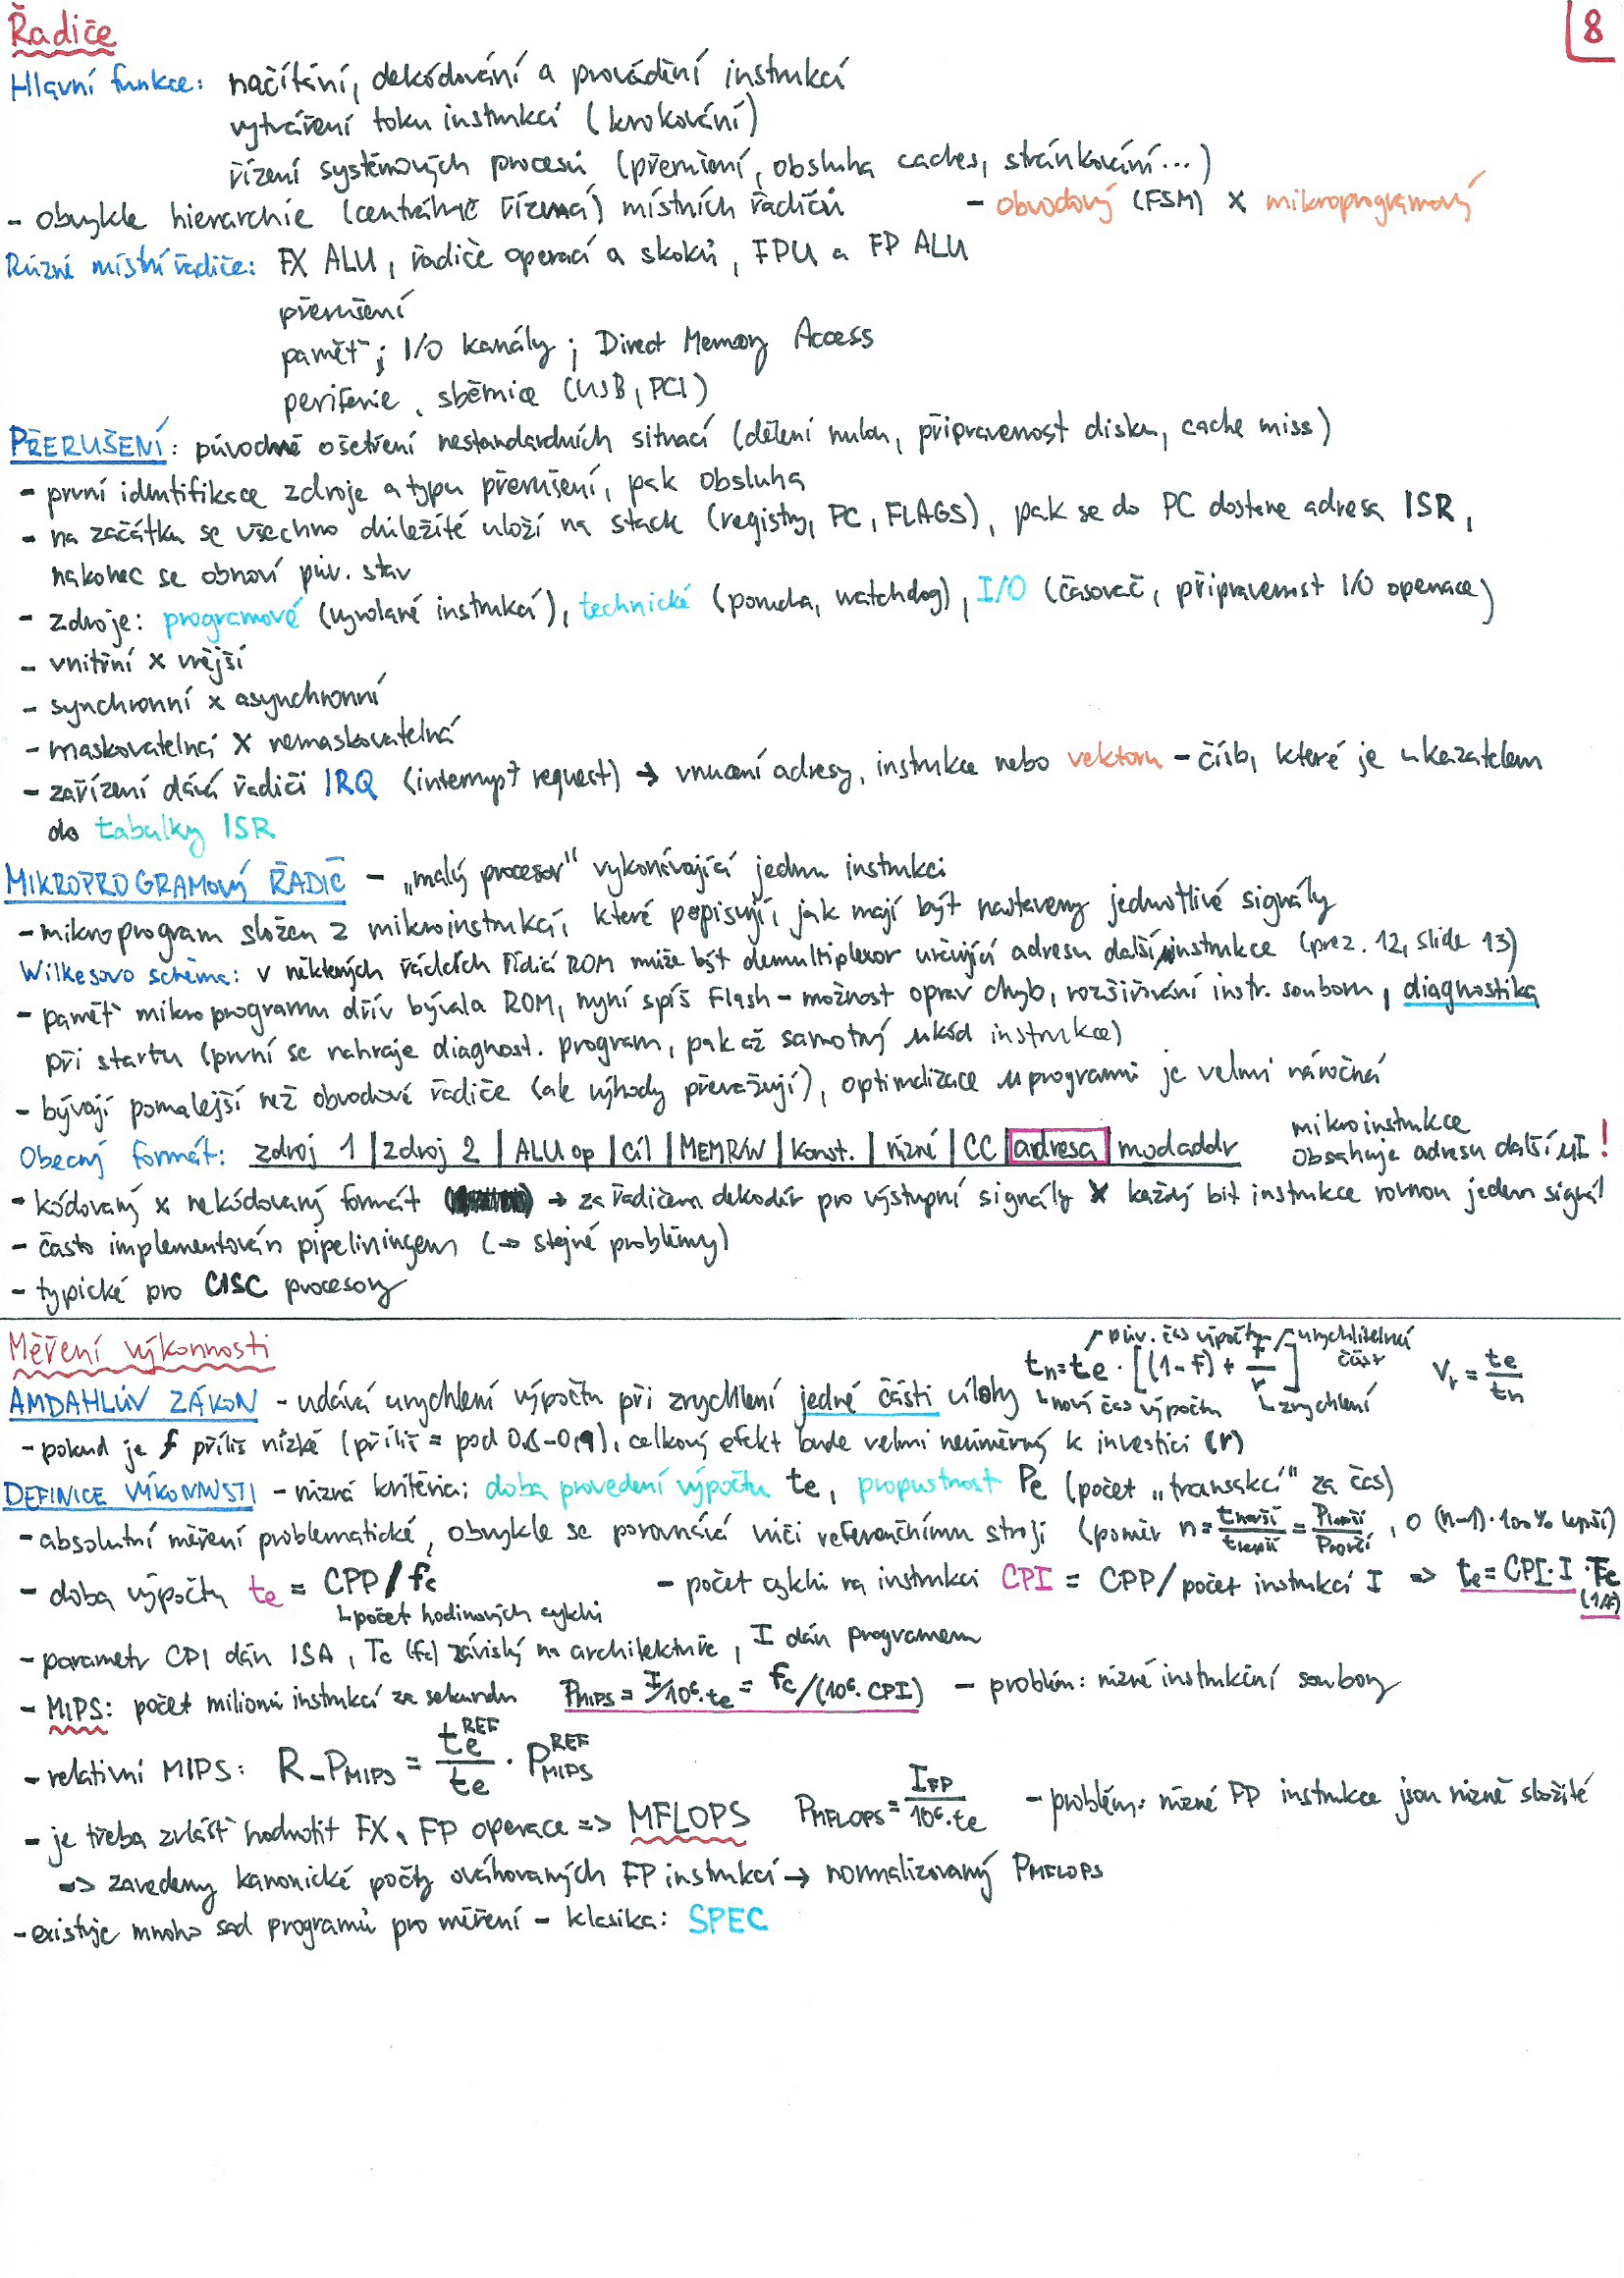 Řadiče
8
Hlavní funkce: načítání, dekódování a provádění instrukcí
vytváření toku instrukcí (krokování)
řízení systémových procesů (přerušení, obsluha caches, stránkování...)
- obvykle hierarchie (centrálně řízená) místních řadičů - obvodový (FSM) x mikroprogramový
Různé místní řadiče: FX ALU, řadiče operací a skoků, FPU a FP ALU
přerušení
paměť; I/O kanály; Direct Memory Access
periferie, sběrnice (USB, PCI)
PŘERUŠENÍ: původně ošetření nestandardních situací (dělení nulou, připravenost disku, cache miss)
- první identifikace zdroje a typu přerušení, pak obsluha
- na začátku se všechno důležité uloží na stack (registry, PC, FLAGS), pak se do PC dostane adresa ISR,
nakonec se obnoví pův. stav
- zdroje: programové (vyvolané instrukcí), technické (porucha, watchdog), I/O (časovač, připravenost I/O operace)
- vnitřní x vnější
- synchronní x asynchronní
- maskovatelná x nemaskovatelná
- zařízení dává řadiči IRQ (interrupt request) → vnucení adresy, instrukce nebo vektoru - číslo, které je ukazatelem
do tabulky ISR
MIKROPROGRAMOVÝ ŘADIČ - „malý procesor" vykonávající jednu instrukci
- mikroprogram složen z mikroinstrukcí, které popisují, jak mají být nastaveny jednotlivé signály
Wilkesovo schéma: v některých řádcích řídicí ROM může být demultiplexor určující adresu další μinstrukce (prez. 12, slide 13)
- paměť mikroprogramu dřív bývala ROM, nyní spíš Flash - možnost oprav chyb, rozšiřování instr. souboru, diagnostika
při startu (první se nahraje diagnost. program, pak až samotný μkód instrukce)
- bývají pomalejší než obvodové řadiče (ale výhody převažují), optimalizace μprogramů je velmi náročná
Obecný formát: zdroj 1 | zdroj 2 | ALU op | cíl | MEMR/W | konst. | různé | CC | adresa | modaddr mikroinstrukce
obsahuje adresu další μI!
- kódovaný x nekódovaný formát → za řadičem dekodér pro výstupní signály x každý bit instrukce rovnou jeden signál
- často implementován pipeliningem (→ stejné problémy)
- typické pro CISC procesory
Měření výkonnosti
pův. čas výpočtu urychlitelná část
tn = te · [(1-f) + f/r] Vr = te/tn
AMDAHLŮV ZÁKON - udává urychlení výpočtu při zrychlení jedné části úlohy nový čas výpočtu zrychlení
- pokud je f příliš nízké (příliš = pod 0,8-0,9), celkový efekt bude velmi neúměrný k investici (r)
DEFINICE VÝKONNOSTI - různá kritéria: doba provedení výpočtu te, propustnost Pe (počet „transakcí" za čas)
- absolutní měření problematické, obvykle se porovnává vůči referenčnímu stroji (poměr n = t horší/t lepší = P lepší/P horší, o (n-1)·100% lepší)
- doba výpočtu te = CPP/fc - počet cyklů na instrukci CPI = CPP/počet instrukcí I => te = CPI·I·Tc
počet hodinových cyklů (1/f)
- parametr CPI dán ISA, Tc (fc) závislý na architektuře, I dán programem
- MIPS: počet milionů instrukcí za sekundu PMIPS = I/10⁶·te = fc/(10⁶·CPI) - problém: různé instrukční soubory
- relativní MIPS: R_PMIPS = te^REF/te · PMIPS^REF
- je třeba zvlášť hodnotit FX, FP operace => MFLOPS PMFLOPS = IFP/10⁶·te - problém: různé FP instrukce jsou různě složité
=> zavedeny kanonické počty ováhovaných FP instrukcí → normalizovaný PMFLOPS
- existuje mnoho sad programů pro měření - klasika: SPEC